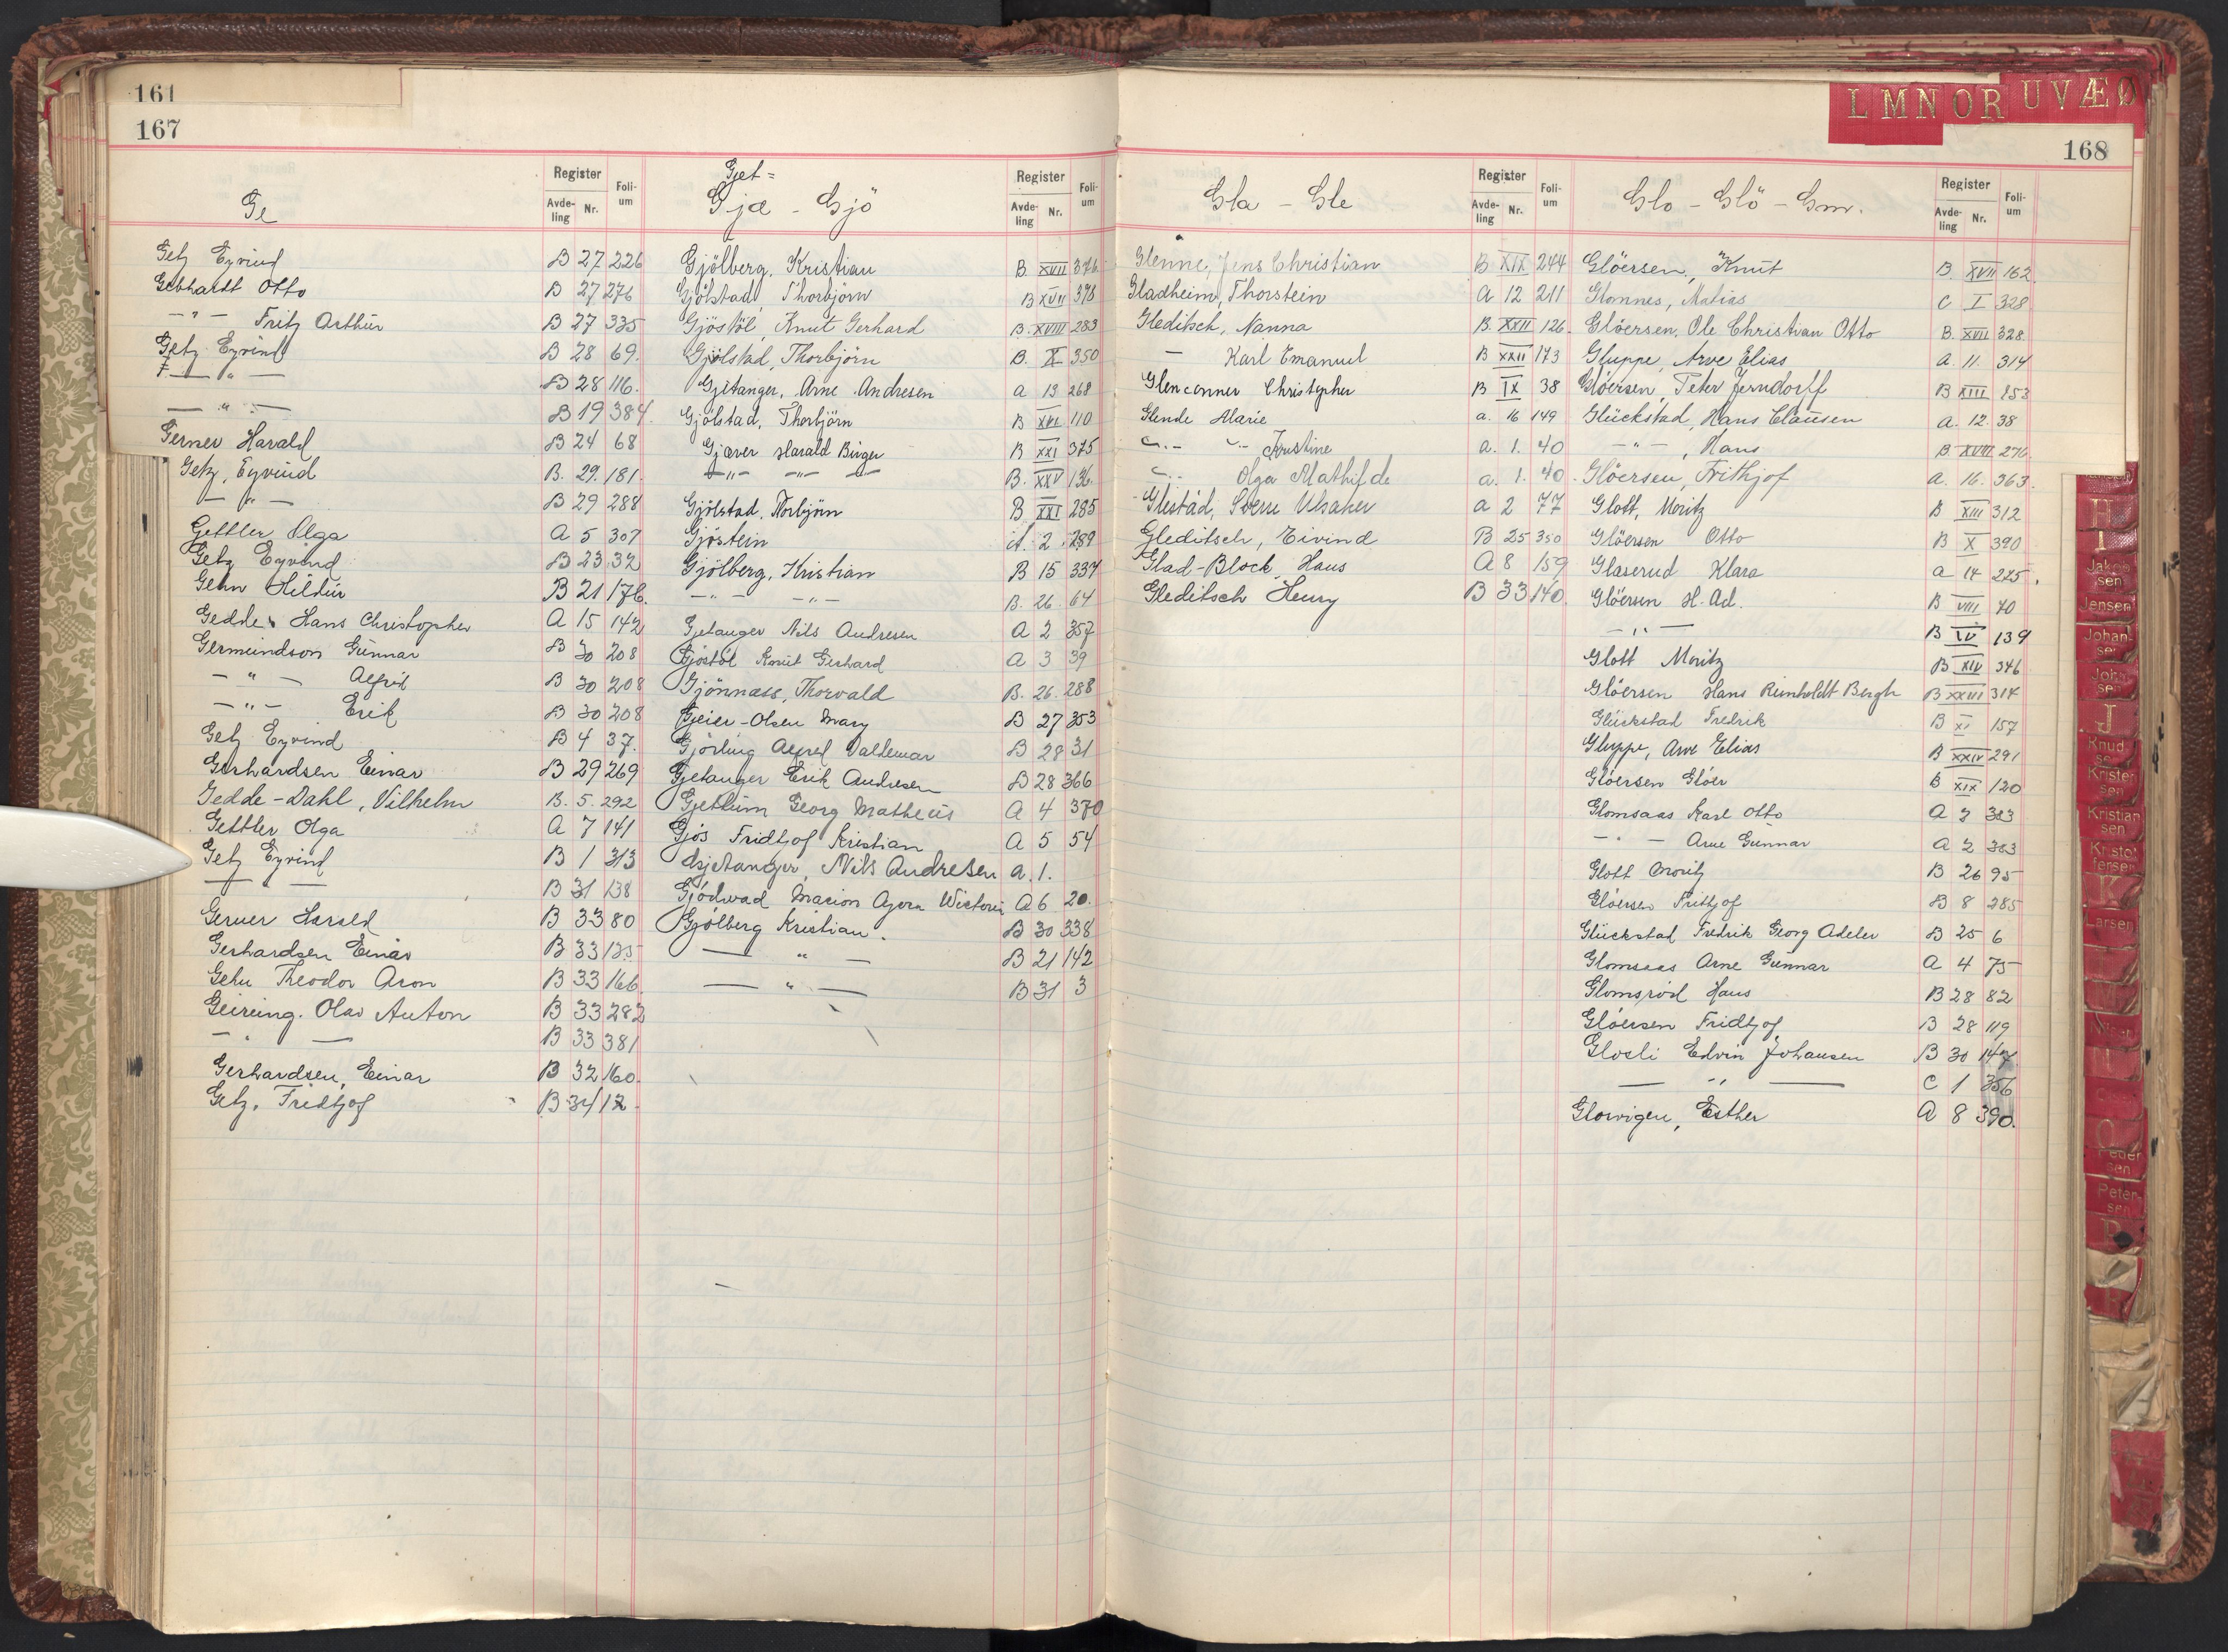 161
167
Ge
Register
Avde-ling Nr.
Foli-um
Getz Eyvind B 27 226
Gebhardt Otto B 27 276
— " — Fritz Arthur B 27 335
Getz Eyvind B 28 69.
— " — B 28 116.
— " — B 19 384.
Gerner Harald B 24 68
Getz, Eyvind B. 29. 181.
— " — B 29 288
Gettler Olga A 5 307
Getz Eyvind B 23 32
Gehn Hildur B 21 176.
Gedde, Hans Christopher A 15 142
Germundson Gunnar B 30 208
— " — Alfrid B 30 208
— " — Erik B 30 208
Getz Eyvind B 4 37.
Gerhardsen Einar B 29 269
Gedde-Dahl, Vilhelm B. 5. 292
Gettler Olga A 7 141
Getz Eyvind B 1 313
— — B 31 138
Gerner Harald B 33 80
Gerhardsen Einar B 33 135
Gehn Theodor Aron B 33 166
Geireing. Olav Anton B 33 282
— " — B 33 381
Gerhardsen, Einar B 32 160.
Getz, Fridtjof B 34 12.
Gjet=
Gjæ - Gjö
Register
Avde-ling Nr.
Foli-um
Gjölberg, Kristian B XVII 376
Gjölstad, Thorbjörn B XVII 378
Gjöstöl, Knut Gerhard B. XVIII 283
Gjölstad, Thorbjörn B. X 350
Gjetanger, Arne Andresen a 13 268
Gjölstad, Thorbjörn B XVI 110
Gjæver Harald Birger B XXI 375
— " — — " — B. XXV 136.
Gjölstad, Torbjörn B XXI 285
Gjöstein A. 2. 289
Gjölberg, Kristian B 15 337
— " — — " — B. 26. 64
Gjetanger Nils Andresen A 2 357
Gjöstöl Knut Gerhard A 3 39
Gjönnæss, Thorvald B. 26. 288
Gjeier-Olsen Mary B 27 353
Gjörling Alfred Valdemar B 28 31
Gjetanger Erik Andresen B 28 366
Gjetlum Georg Matheus A 4 370
Gjös Fridtjof Kristian A 5 54
Gjetanger, Nils Andresen a. 1.
Gjödwad Marion Agora Wictoria A 6 20.
Gjölberg Kristian. B 30 338
— " — B 21 142
— " — B 31 3
168
L M N O R U V Æ Ø
Gla - Gle
Register
Avde-ling Nr.
Foli-um
Glenne, Jens Christian B XIX 244
Gladheim, Thorstein a 12 211
Gleditsch, Nanna B. XXII 126.
— Karl Emanuel B XXII 173
Glenconner Christopher B IX 38
Glende Marie a. 16 149
— " — — " — Justine a. 1. 40
— " — Olga Mathilde a. 1. 40
Glestad, Sverre Ulsaker a 2 77
Gleditsch, Eivind B 25 350
Glad-Block Hans A 8 159
Gleditsch Henry B 33 140.
Glo - Glö - Gm.
Register
Avde-ling Nr.
Foli-um
Glöersen, Knut B. XVII 162
Glomnes, Matias C I 328
Glöersen, Ole Christian Otto B. XVII 328
Gluppe, Arve Elias a. 11. 314
Glöersen, Peter Jerndorff B XIII 153
Glückstad, Hans Clausen a. 12. 38
— " — , Hans B XVIII 276
Glöersen, Frithjof a. 16. 363.
Glott, Moritz B XIII 312
Glöersen Otto B X 390
Glaserud Klara a 14 225.
Glöersen H. Ad. B VIII 40
— " — B IV 139
Glott Moritz B XIV 346
Glöersen Hans Reinholdt Bergh B XXIII 314
Glückstad Fredrik B XI 157
Gluppe, Arve Elias B XXIV 291
Glöersen Glöer B XIX 120
Glomsaas Karl Otto A 2 383
— " — Arne Gunnar A 2 383
Glott Moritz B 26 95
Glöersen Fritjof B 8 285
Glückstad Fredrik Georg Adeler B 25 6
Glomsaas Arne Gunnar A 4 75
Glomsröd Hans B 28 82
Glöersen Fridtjof B 28 119
Glosli Edvin Johansen B 30 147
— " — C 1 356
Glowigen, Esther A 8 390.
H
I
Jakobsen
Jensen
Johansen
J
Knudsen
Kristensen
Kristiansen
Kristoffersen
K
Larsen
Pedersen
Petersen